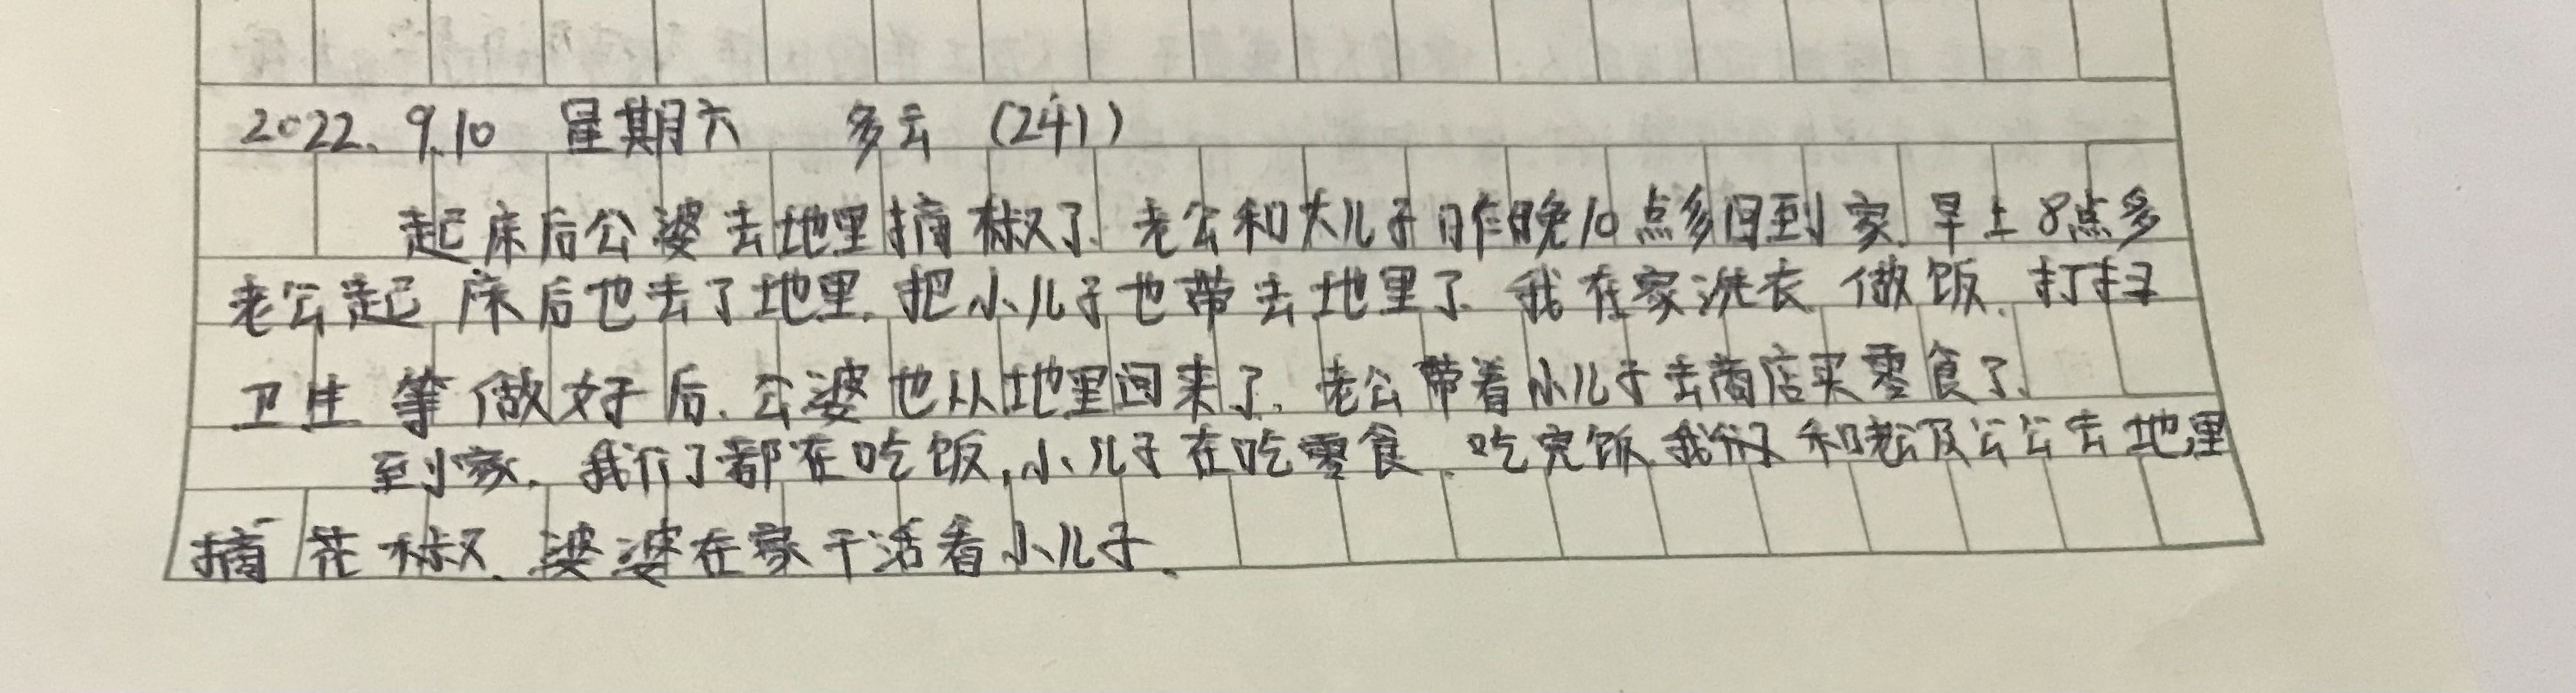 2022.9.10 星期六 多云 (241)
起床后公婆去地里摘椒了.老公和大儿子昨晚10点多回到家.早上8点多
老公起床后也去了地里.把小儿子也带去地里了.我在家洗衣 做饭.打扫
卫生 等做好后.公婆也从地里回来了.老公带着小儿子去商店买零食了.
到家.我们都在吃饭,小儿子在吃零食.吃完饭.我 和老公及公公去地里
摘花椒.婆婆在家干活看小儿子.